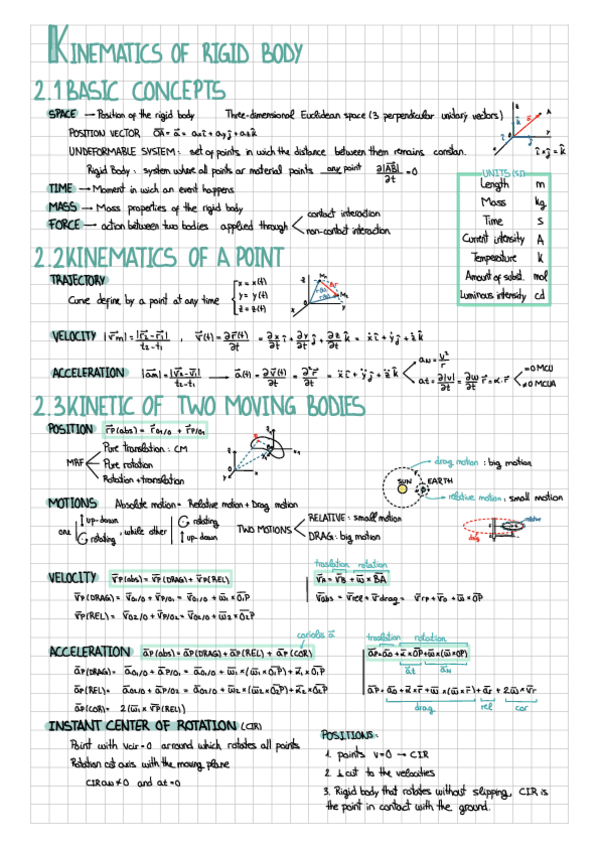 KINEMATICS OF RIGID BODY
2.1 BASIC CONCEPTS
SPACE → Position of the rigid body Three-dimensional Euclidean space (3 perpendicular unitary vectors)
POSITION VECTOR OA = a = axi + ayj + azk
i × j = k
UNDEFORMABLE SYSTEM: set of points in wich the distance between them remains constan.
Rigid Body: system where all points ar material points any point ∂|AB|/∂t = 0
TIME → Moment in wich an event happens
MASS → Mass properties of the rigid body
FORCE → action between two bodies applied through
contact interaction
non-contact interaction
UNITS (SI)
Length m
Mass kg
Time s
Current intensity A
Temperature k
Amount of subst. mol
Luminous intensity cd
2.2 KINEMATICS OF A POINT
TRAJECTORY
Curve define by a point at any time
x = x(t)
y = y(t)
z = z(t)
VELOCITY |vm| = |r2-r1|/t2-t1 , v(t) = ∂r(t)/∂t = ∂x/∂t i + ∂y/∂t j + ∂z/∂t k = ẋi + ẏj + żk
ACCELERATION |am| = |v2-v1|/t2-t1 → a(t) = ∂v(t)/∂t = ∂²r/∂t = ẍi + ÿj + z̈k
aN = v²/r
at = ∂|v|/∂t = ∂w/∂t r = α·r
=0 MCU
≠0 MCUA
2.3 KINETIC OF TWO MOVING BODIES
POSITION rP(abs) = r01/0 + rP/01
MRF
Pure translation: CM
Pure rotation
Rotation + translation
drag motion: big motion
SUN EARTH
relative motion: small motion
MOTIONS Absolute motion = Relative motion + Drag motion
one
up-down
rotating
, while other
rotating
up-down
TWO MOTIONS
RELATIVE: small motion
DRAG: big motion
relative
drag
VELOCITY vP(abs) = vP(DRAG) + vP(REL)
traslation rotation
vA = vB + w × BA
vP(DRAG) = v01/0 + vP/01 = v01/0 + w1 × O1P
vabs = vrel + vdrag = vrp + v0 + w × OP
vP(REL) = v02/0 + vP/02 = v02/0 + w2 × O2P
coriolis a
ACCELERATION aP(abs) = aP(DRAG) + aP(REL) + aP(COR)
traslation rotation
aP = a0 + α × OP + w × (w × OP)
at aN
aP(DRAG) = a01/0 + aP/01 = a01/0 + w1 × (w1 × O1P) + α1 × O1P
aP(REL) = a02/0 + aP/02 = a02/0 + w2 × (w2 × O2P) + α2 × O2P
aP = a0 + α × r + w × (w × r) + ar + 2w × vr
drag rel cor
aP(COR) = 2(w1 × vP(REL))
INSTANT CENTER OF ROTATION (CIR)
Point with vcir = 0 arround which rotates all points
Rotation cut axis with the moving plane
CIR aN ≠ 0 and at = 0
POSITIONS:
1. points v=0 → CIR
2. ⊥ cut to the velocities
3. Rigid body that rotates without slipping, CIR is
the point in contact with the ground.